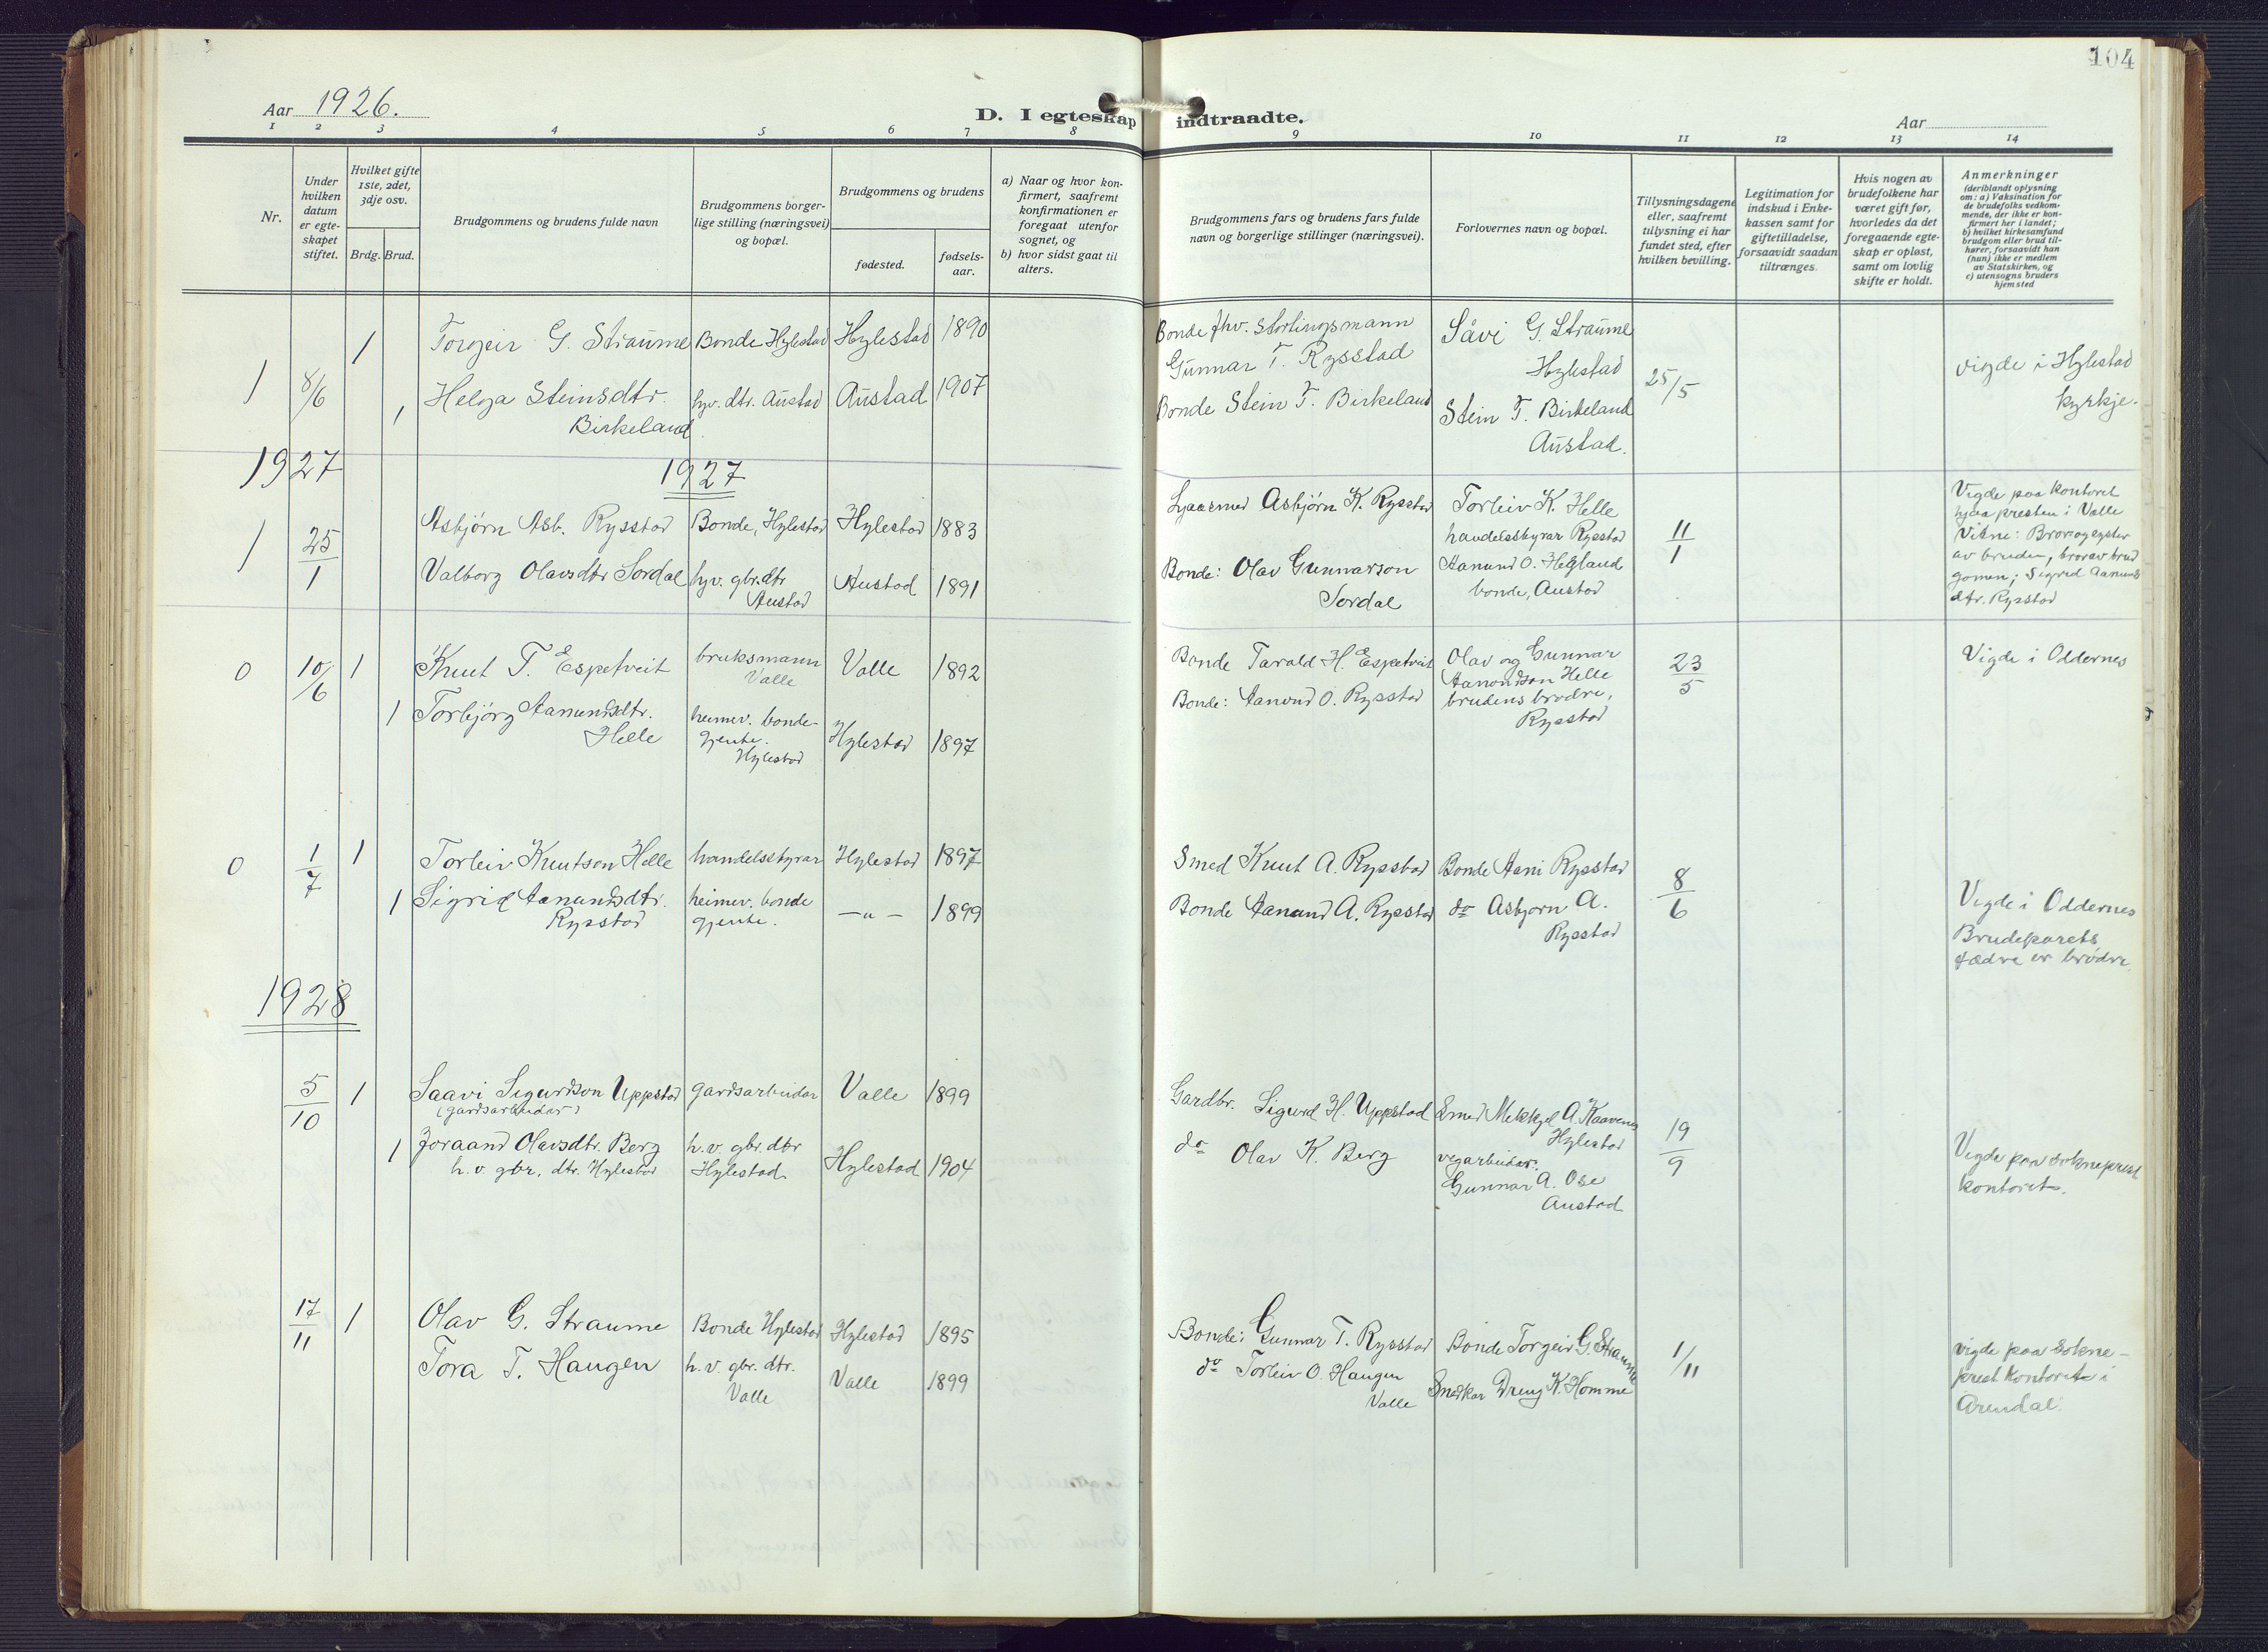 104
Aar 1926.
D. I egteskap indtraadte.
Aar
1 2 3 4 5 6 7 8 9 10 11 12 13 14
Nr.
Under
hvilken
datum
er egte-
skapet
stiftet.
Hvilket gifte
1ste, 2det,
3dje osv.
Brdg. Brud.
Brudgommens og brudens fulde navn
Brudgommens borger-
lige stilling (næringsvei)
og bopæl.
Brudgommens og brudens
fødested.
fødsels-
aar.
a) Naar og hvor kon-
firmert, saafremt
konfirmationen er
foregaat utenfor
sognet, og
b) hvor sidst gaat til
alters.
Brudgommens fars og brudens fars fulde
navn og borgerlige stillinger (næringsvei).
Forlovernes navn og bopæl.
Tillysningsdagene
eller, saafremt
tillysning ei har
fundet sted, efter
hvilken bevilling.
Legitimation for
indskud i Enke-
kassen samt for
giftetilladelse,
forsaavidt saadan
tiltrænges.
Hvis nogen av
brudefolkene har
været gift før,
hvorledes da det
foregaaende egte-
skap er opløst,
samt om lovlig
skifte er holdt.
Anmerkninger
(deriblandt oplysning
om: a) Vaksination for
de brudefolks vedkom-
mende, der ikke er kon-
firmert her i landet;
b) hvilket kirkesamfund
brudgom eller brud til-
hører, forsaavidt han
(hun) ikke er medlem
av Statskirken, og
c) utensogns bruders
hjemsted
1 8/6 1 Torgeir G. Straume Bonde Hylestad Hylestad 1890
1 Helga Steinsdtr. Birkeland hjv. dtr. Austad Austad 1907
Bonde fhv. stortingsmann
Gunnar T. Rysstad
Bonde Stein T. Birkeland
Såvi G. Straume
Hylestad
Stein T. Birkeland
Austad.
25/5
vigde i Hylestad
kyrkje.
1927 1927
1 25/1 Asbjørn Asb. Rysstad Bonde, Hylestad Hylestad 1883
Valborg Olavsdtr Sordal hjv. gbr. dtr Austad Austad 1891
Asbjørn K. Rysstad
Bonde: Olav Gunnarson
Sordal
Torleiv K. Helle
handelsstyrar Rysstad
Aanund O. Helgland
bonde, Austad
11/1
Vigde paa kontoret
hjaa presten i Valle
Vitne: Bror og syster
av bruden, bror av brud
gomen; Sigrid Aanunds
dtr. Rysstad
0 10/6 1 Knut T. Espetveit bruksmann Valle Valle 1892
1 Torbjörg Aanundsdtr. Helle heimev. bonde-
gjente. Hylestad Hylestad 1897
Bonde Tarald H. Espetveit
Bonde: Aanund O. Rysstad
Olav og Gunnar
Aanondson Helle
brudens brødre,
Rysstad
23/5
Vigde i Oddernes
0 1/7 1 Torleiv Knutson Helle handelsstyrar Hylestad 1897
1 Sigrid Aanundsdtr. Rysstad heimev. bonde
gjente. —"— 1899
Smed Knut A. Rysstad
Bonde Aanund A. Rysstad
Bonde Aani Rysstad
do Asbjorn A.
Rysstad
8/6
Vigde i Oddernes
Brudeparets
fædre er brødre.
1928
5/10 1 Saavi Sigurdson Uppstad gardsarbeidar Valle 1899
(gardsarbeidar)
1 Joraand Olavsdtr. Berg h.v. gbr. dtr Hylestad Hylestad 1904
h.v. gbr. dtr. Hylestad
Gardbr. Sigurd H. Uppstad
do Olav K. Berg
Smed A. Kaavenes
Hylestad
vegarbeidar.
Gunnar A. Ose
Austad
19/9
Vigde paa sokneprest
kontoret.
17/11 1 Olav G. Straume Bonde Hylestad Hylestad 1895
Tora T. Haugen h.v. gbr. dtr. Valle Valle 1899
Bonde: Gunnar T. Rysstad
do Torleiv O. Haugen
Valle
Bonde Torgeir G. Straume
Dreng K. Homme
1/11
vigde paa sokne-
prest kontoret i
Arendal.